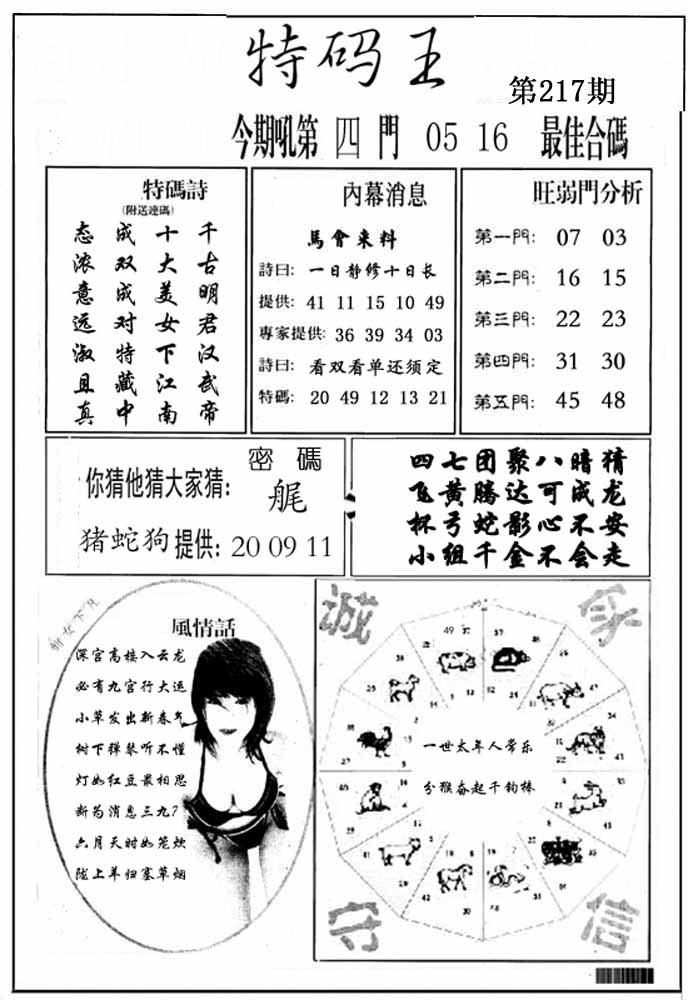 特码王
第217期
今期吼第 四 門 05 16 最佳合碼
特碼詩
(附送連碼)
态 成 十 千
浓 双 大 古
意 成 美 明
远 对 女 君
淑 特 下 汉
且 藏 江 武
真 中 南 帝
內幕消息
馬會來料
詩曰: 一日静修十日长
提供: 41 11 15 10 49
專家提供: 36 39 34 03
詩曰: 看双看单还须定
特碼: 20 49 12 13 21
旺弱門分析
第一門: 07 03
第二門: 16 15
第三門: 22 23
第四門: 31 30
第五門: 45 48
密 碼
你猜他猜大家猜: 艉
猪蛇狗 提供: 20 09 11
四七团聚八暗猜
飞黄腾达可成龙
杯弓蛇影心不安
小组千金不会走
仙女下凡
風情話
深宫高楼入云龙
必有九宫行大运
小草发出新春气
树下弹琴听不懂
灯如红豆最相思
新为消息三九7
六月天时如笼炊
陇上羊归塞草烟
诚 家
一世太年人常乐
分猴奋起千钧棒
守 信